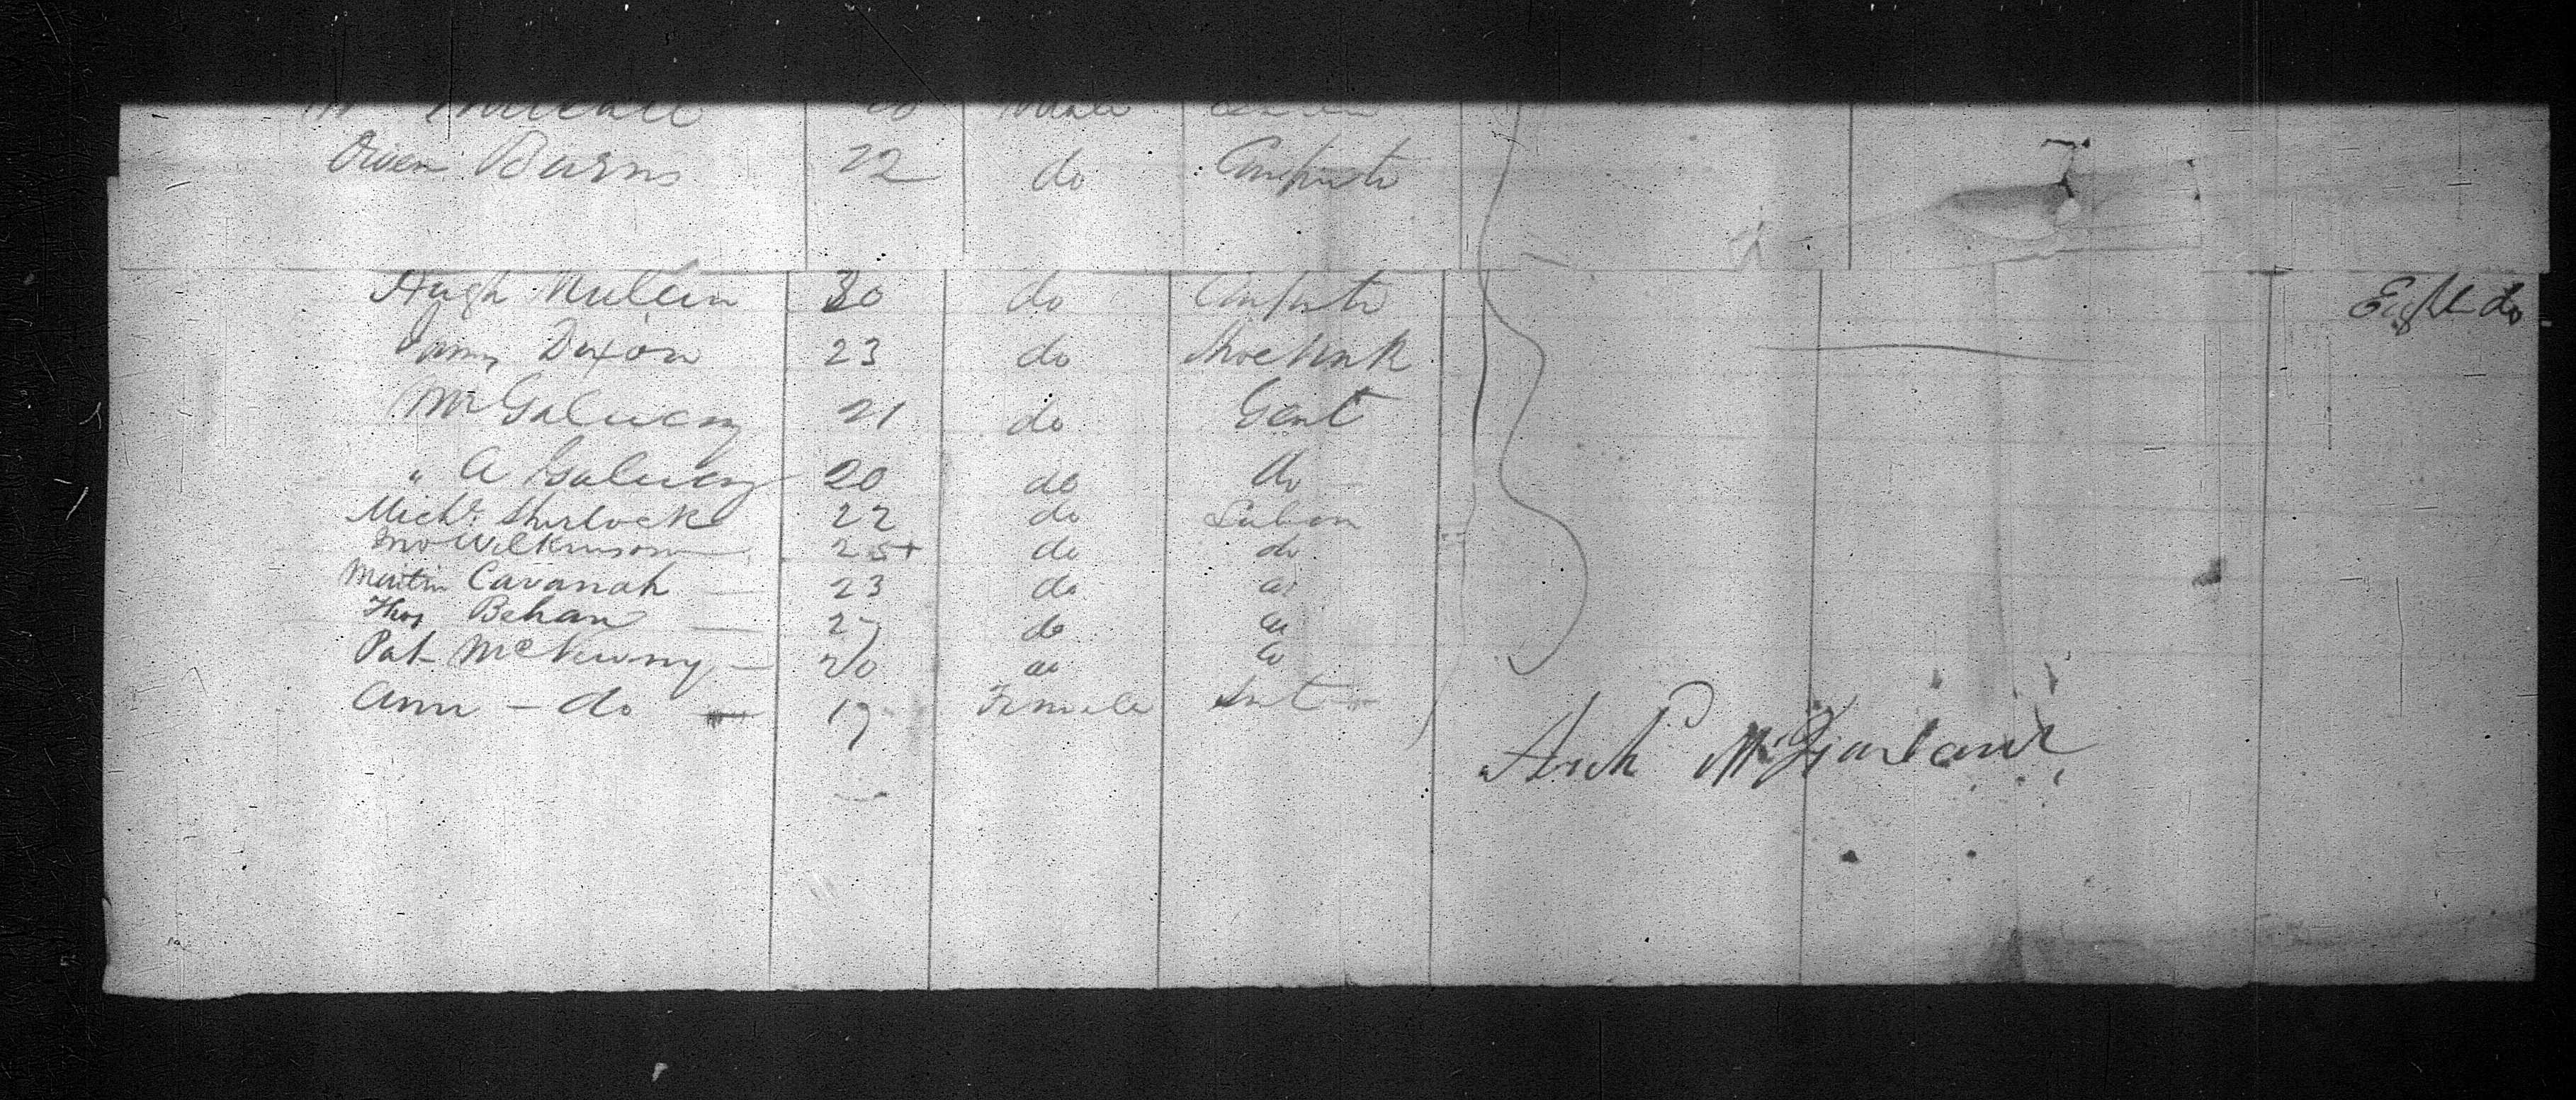 Owen Burns 22 do Carpintr
Hugh Mullin 30 do Carpintr Eight do
James Dixon 23 do Shoe Mak
Mr Galway 21 do Gent
" A Galway 20 do do
Michl. Sherlock 22 do Labour
Wilkinson 25 do do
Martin Cavanah 23 do do
Thos Behan 27 do do
Pat 20 do do
Ann - do - 19 Female
Arch Mc